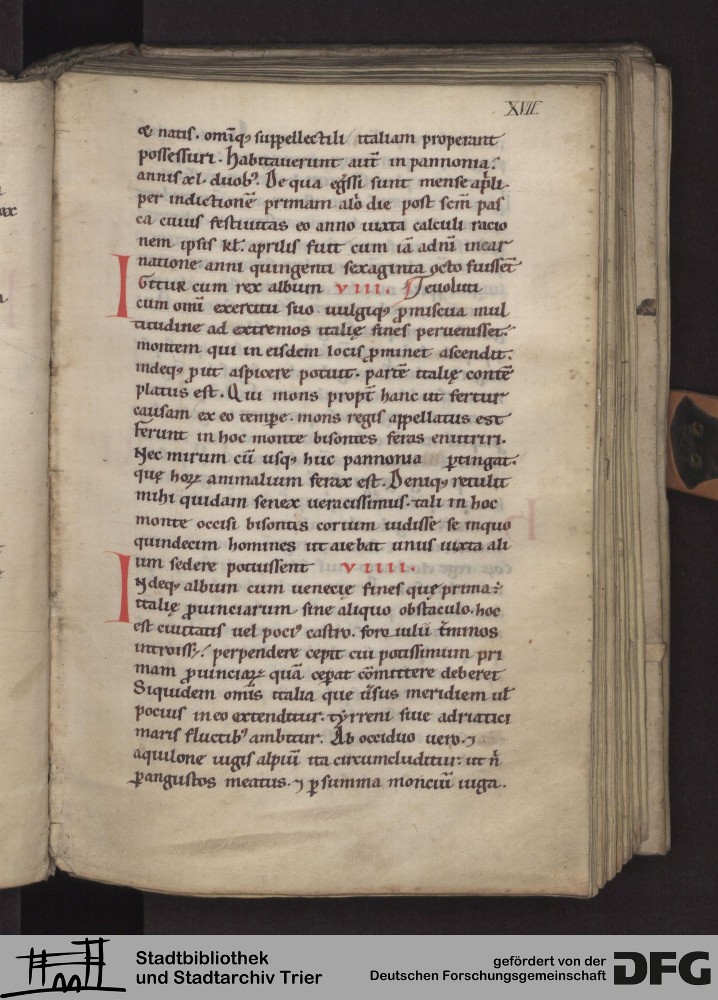 XVII
& natis. omīq; suppellectili italiam properant
possessuri. Habitauerunt aut̄ in pannonia.
annis xl. duob;. De qua eg̅ssi sunt mense ap̅li.
per indictionē primam alō die post scm̄ pas
ca cuius festiuitas eo anno iuxta calculi racio
nem ipsis kl̄. aprilis fuit cum iā a dn̄i incar
natione anni quingenti sexaginta octo fuissent̄
Igitur cum rex albuin VIII. euoluti
cum omī exercitu suo uulgiq; p̱miscua mul
titudine ad extremos italię fines peruenisset.
montem qui in eisdem locis p̱minet ascendit.
indeq; put aspicere potuit. partē italię contē
platus est. Qui mons propt̄ hanc ut fertur
causam ex eo temp̱e. mons regis appellatus est
ferunt in hoc monte bisontes feras enutriri.
Nec mirum cū usq; huc pannonia p̱tingat.
quę hoꝝ animalium ferax est. Deniq; retulit
mihi quidam senex ueracissimus. tali in hoc
monte occisi bisontis corium uidisse se inquo
quindecim homines ut aiebat unus iuxta ali
um sedere potuissent VIIII.
Indeq; albuin cum uenecię fines que prima ÷
italię p̱uinciarum sine aliquo obstaculo. hoc
est ciuitatis uel poci᾽ castro. foro iulii t̄minos
introiss;. perpendere cepit cui potissimum pri
mam p̱uinciaꝝ quā cep̱at cōmittere deberet
Siquidem omīs italia que ūsus meridiem ul̄
pocius in eo extenditur. tyrreni siue adriatici
maris fluctib; ambitur. Ab occiduo uero. ⁊
aquilone iugis alpiū ita circumcluditur: ut n̄
p̱ angustos meatus. ⁊ p̱ summa monciū iuga.
Stadtbibliothek
und Stadtarchiv Trier
gefördert von der
Deutschen Forschungsgemeinschaft
DFG